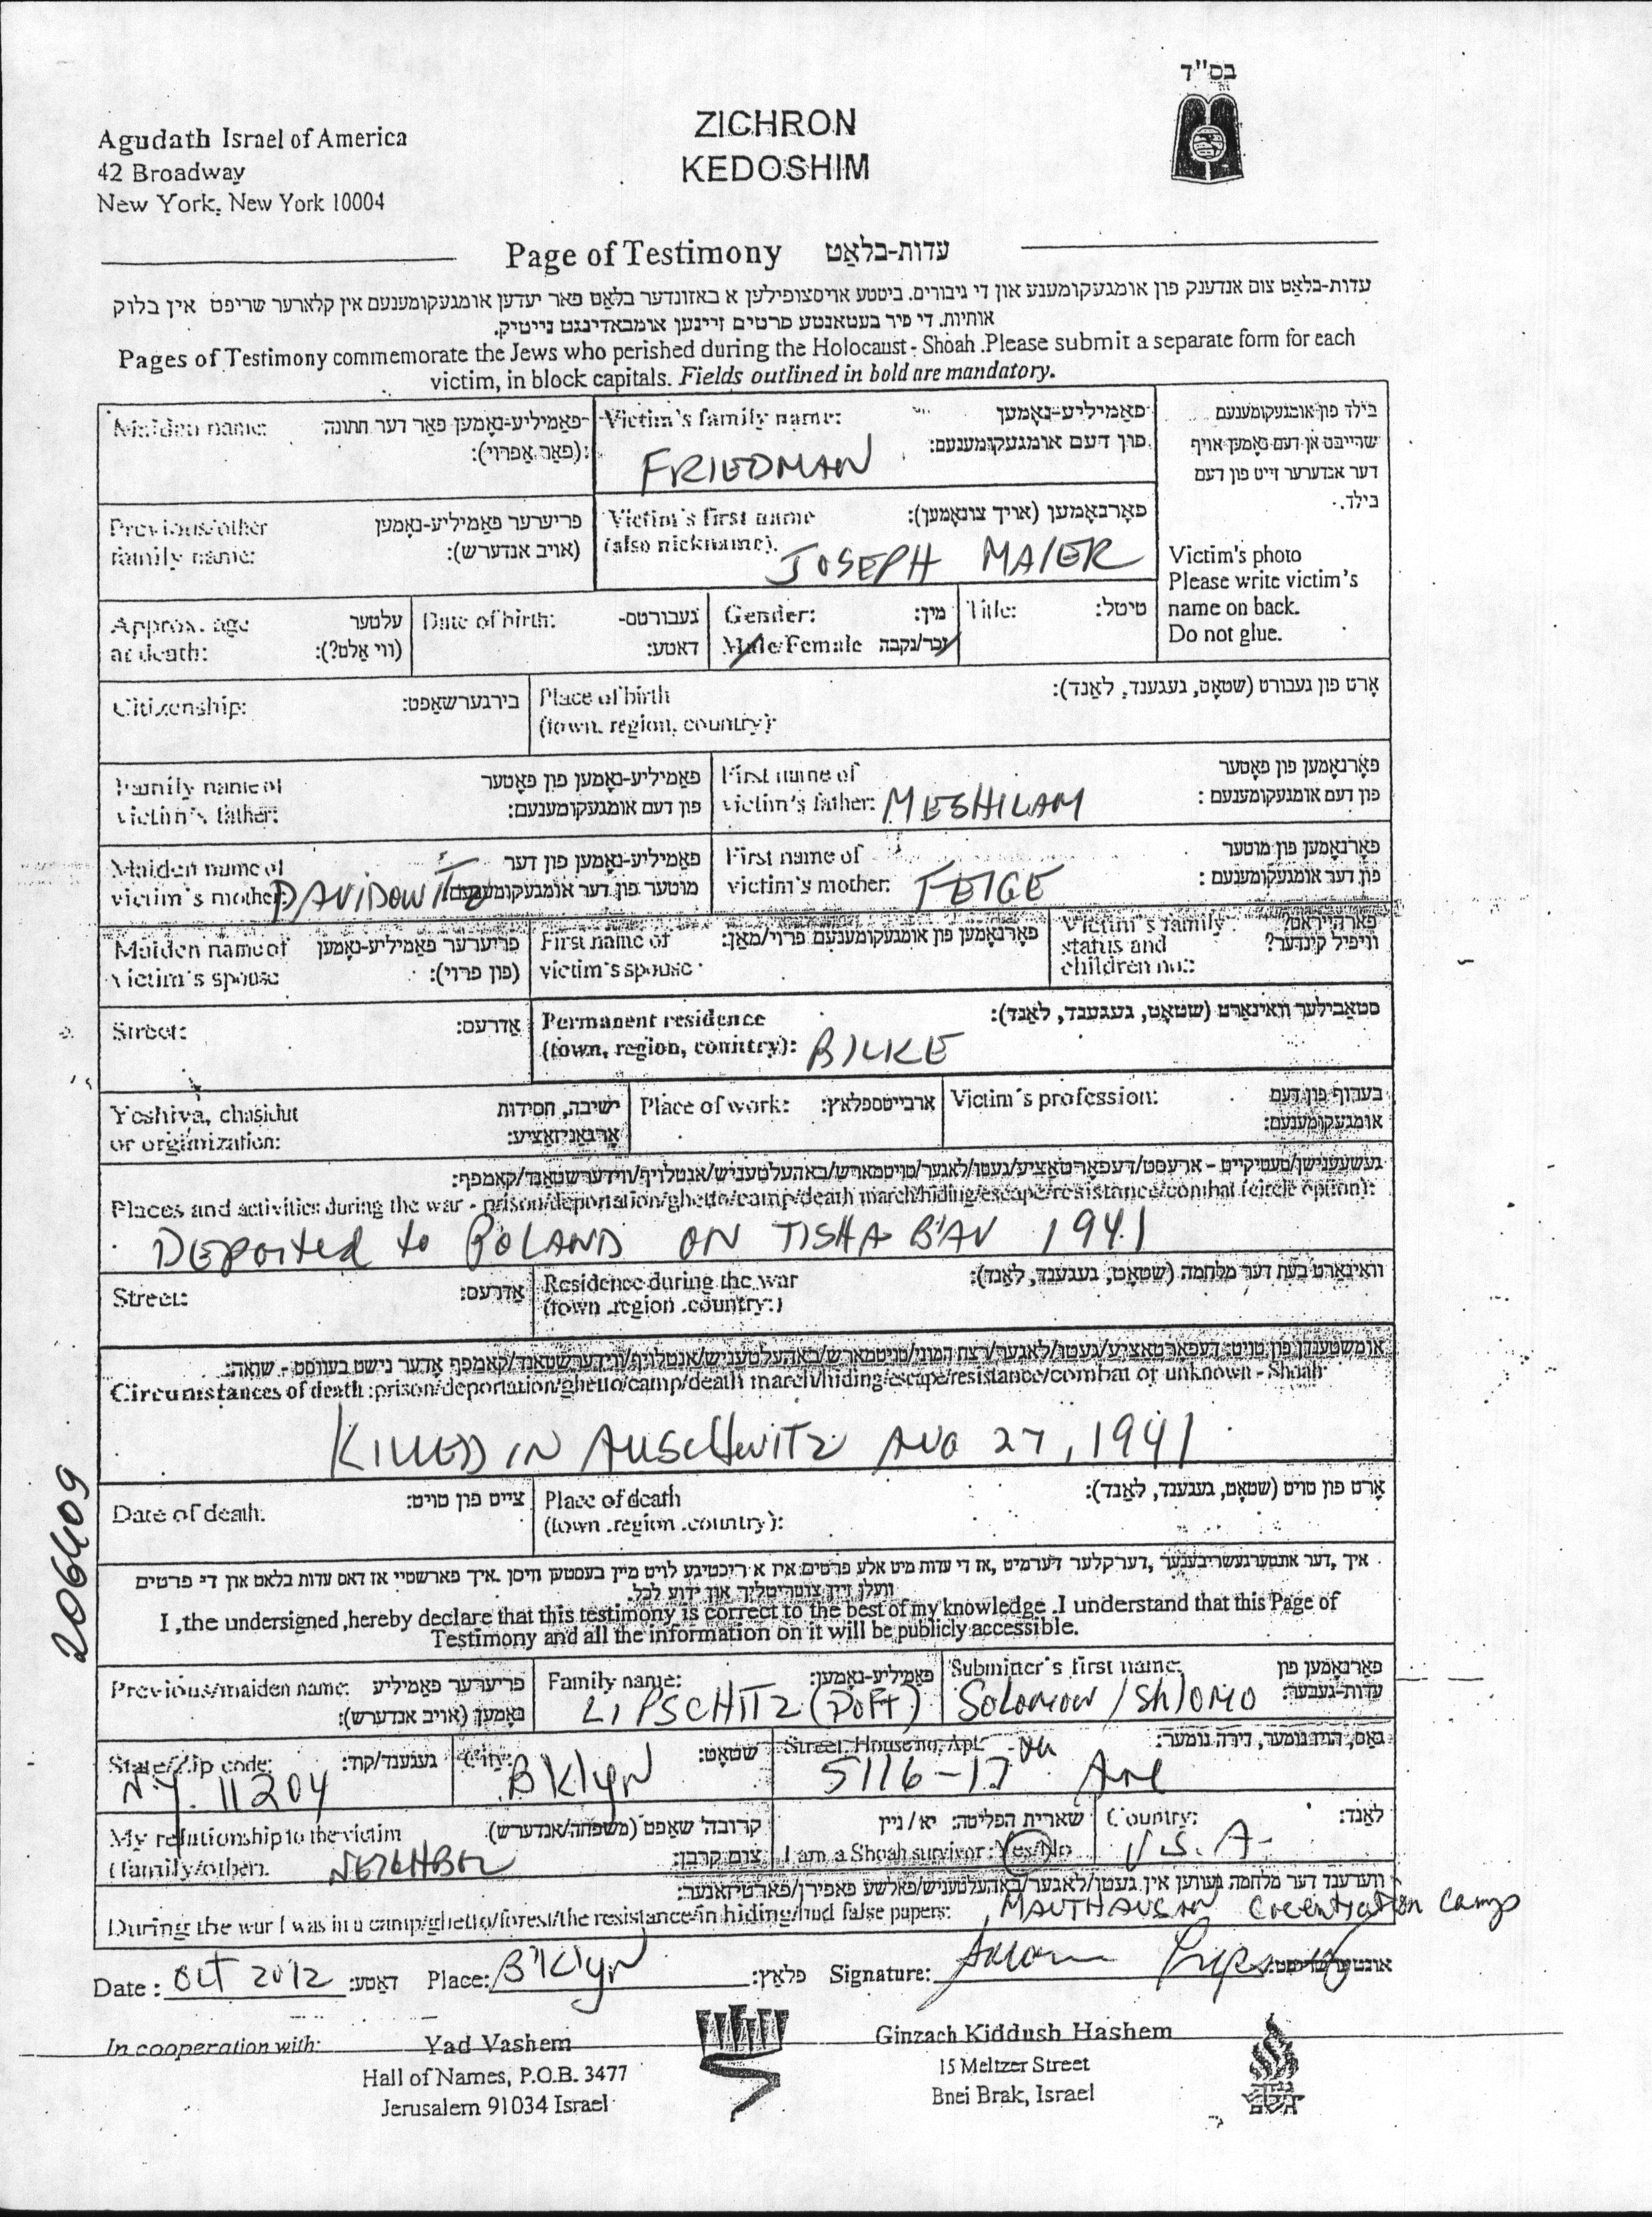 בס"ד
Agudath Israel of America
42 Broadway
New York, New York 10004
ZICHRON
KEDOSHIM
Page of Testimony עדות-בלאַט
עדות-בלאַט צום אנדענק פון אומגעקומענע און די גיבורים. ביטטע אויסצופילען א באזונדער בלאַט פאר יעדען אומגעקומענעם אין קלארער שריפט אין בלוק
אותיות. די פיר בעטאנטע פרטים זיינען אומבאדינגט נייטיק.
Pages of Testimony commemorate the Jews who perished during the Holocaust - Shoah .Please submit a separate form for each
victim, in block capitals. Fields outlined in bold are mandatory.
Maiden name: פאַמיליע-נאָמען פאַר דער חתונה
(פאַר אַ פרוי):
Victim's family name: פאַמיליע-נאָמען
פון דעם אומגעקומענעם:
FRIEDMAN
בילד פון אומגעקומענעם
שרייבט אן דעם נאָמען אויף
דער אנדערער זייט פון דעם
בילד.
Previous/other פריערער פאַמיליע-נאָמען
family name: (אויב אנדערש):
Victim's first name פאָרנאָמען (אויך צונאָמען):
(also nickname). JOSEPH MAIER
Victim's photo
Please write victim's
name on back.
Do not glue.
Approx. age עלטער
at death: (ווי אַלט?):
Date of birth: געבורטס-
דאַטע:
Gender: מין:
Male/Female זכר/נקבה
Title: טיטל:
Citizenship: בירגערשאַפט:
Place of birth אָרט פון געבורט (שטאָט, געגענד, לאַנד):
(town, region, country):
Family name of פאַמיליע-נאָמען פון פאָטער
victim's father: פון דעם אומגעקומענעם:
First name of פאָרנאָמען פון פאָטער
victim's father: MESHILAM פון דעם אומגעקומענעם:
Maiden name of פאַמיליע-נאָמען פון דער
victim's mother: DAVIDOWITZ מוטער פון דער אומגעקומענעם
First name of פאָרנאָמען פון מוטער
victim's mother: FEIGE פון דער אומגעקומענעם:
Maiden name of פריערער פאַמיליע-נאָמען
victim's spouse (פון פרוי):
First name of פאָרנאָמען פון אומגעקומענעם פרוי/מאַן:
victim's spouse
Victim's family פארהייראט?
status and וויפיל קינדער?
children no.:
Street: אַדרעס:
Permanent residence סטאַבילער וואוינאָרט (שטאָט, געגענד, לאַנד):
(town, region, country): BILKE
Yeshiva, chasidut ישיבה, חסידות
or organization: אָרגאַניזאַציע:
Place of work: ארבייטספלאץ:
Victim's profession: בערוף פון דעם
אומגעקומענעם:
געשעענישן/טעטיקייט - ארעסט/דעפּאָרטאַציע/געטו/לאגער/טויטמארש/באהעלטעניש/אנטלויף/ווידערשטאנד/קאמפף:
Places and activities during the war - prison/deportation/ghetto/camp/death march/hiding/escape/resistance/combat (circle option):
DEPorted to POLAND ON TISHA B'AV 1941
Street: אַדרעס:
Residence during the war וואוינאָרט בעת דער מלחמה (שטאָט, געגענד, לאַנד):
(town .region .country:)
אומשטענדן פון טויט: דעפּאָרטאַציע/געטו/לאגער/רצח המוני/טויטמארש/באהעלטעניש/אנטלויף/ווידערשטאנד/קאמפף אָדער נישט בעוואוסט - שואה:
Circumstances of death :prison/deportation/ghetto/camp/death march/hiding/escape/resistance/combat or unknown - Shoah
KILLED IN AUSCHWITZ AUG 27, 1941
Date of death: צייט פון טויט:
Place of death אָרט פון טויט (שטאָט, געגענד, לאַנד):
(town .region .country):
206409
איך ,דער אונטערגעשריבענער ,דערקלער דערמיט ,אז די עדות מיט אלע פרטים איז א ריכטיגע לויט מיין בעסטען וויסן .איך פארשטיי אז דאס עדות בלאט און די פרטים
וועלן זיין צוטריטליך און ידוע לכל.
I ,the undersigned ,hereby declare that this testimony is correct to the best of my knowledge .I understand that this Page of
Testimony and all the information on it will be publicly accessible.
Previous/maiden name: פריערער פאַמיליע
נאָמען (אויב אנדערש):
Family name: פאַמיליע-נאָמען:
LIPSCHITZ (DOFT)
Submitter's first name: פאָרנאָמען פון
עדות-געבער:
Solomon / Shlomo
State/Zip code: געגענד/קוד:
N.Y. 11204
City: שטאָט:
BKlyn
Street, House no, Apt. גאַס, הויז נומער, דירה נומער:
5116-17 th Ave
My relationship to the victim קרובה'שאַפט (משפחה/אנדערש)
(family/other). NEIGHBOR צום קרבן:
שארית הפליטה: יא / ניין
I am a Shoah survivor: Yes/No
Country: לאַנד:
U.S.A.
ווערענד דער מלחמה געווען אין געטו/לאגער/באהעלטעניש/פאלשע פאפירן/פארטיזאנער:
During the war I was in a camp/ghetto/forest/the resistance/in hiding/had false papers: MAUTHAUSAN Concentration Camp
Date : Oct 2012 דאַטע: Place: BKlyn פּלאַץ: Signature:
In cooperation with:
Yad Vashem
Hall of Names, P.O.B. 3477
Jerusalem 91034 Israel
Ginzach Kiddush Hashem
15 Meltzer Street
Bnei Brak, Israel